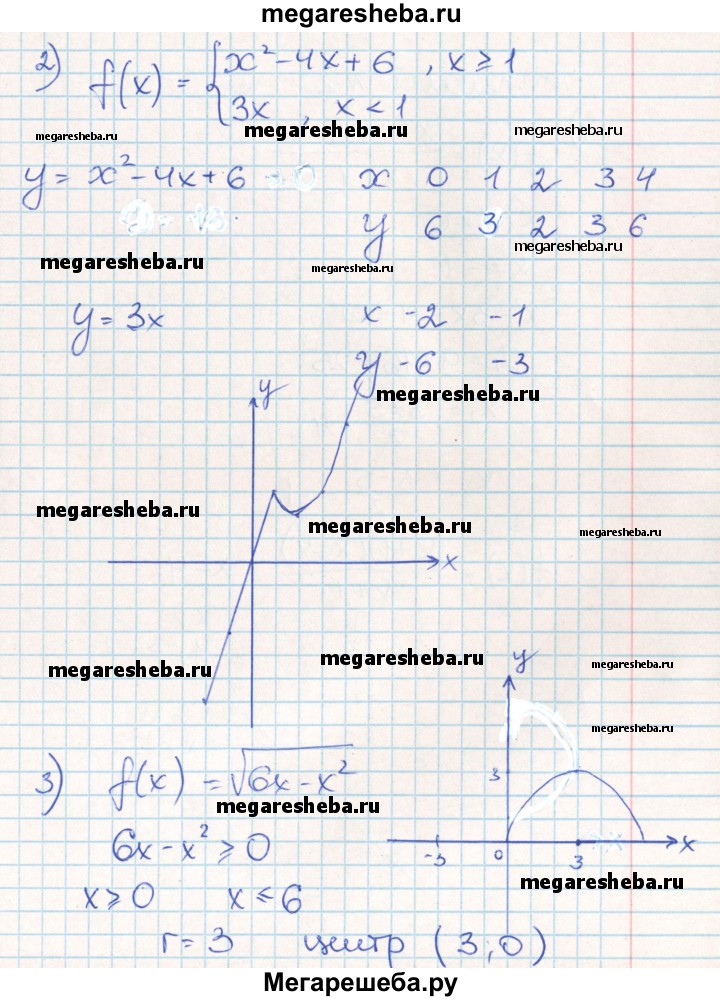 megaresheba.ru
2) f(x) = { x² - 4x + 6 , x ≥ 1
3x , x < 1
megaresheba.ru megaresheba.ru megaresheba.ru
y = x² - 4x + 6 x 0 1 2 3 4
y 6 3 2 3 6
megaresheba.ru megaresheba.ru megaresheba.ru
y = 3x x -2 -1
y -6 -3
megaresheba.ru
y
megaresheba.ru megaresheba.ru megaresheba.ru
x
megaresheba.ru megaresheba.ru megaresheba.ru
y
megaresheba.ru
3) f(x) = √(6x - x²)
3
megaresheba.ru
6x - x² ≥ 0
-3 0 3 x
x ≥ 0 x ≤ 6
megaresheba.ru
r = 3 центр (3; 0)
Мегарешеба.ру